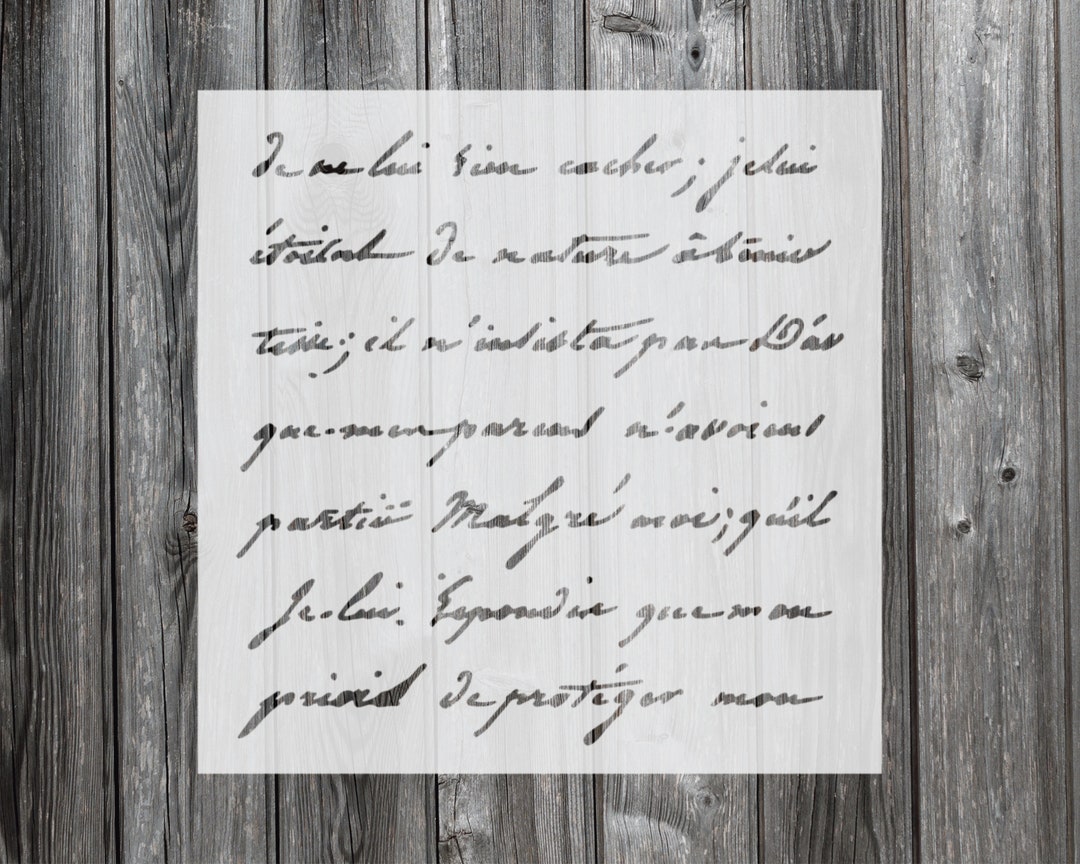 de ne lui rien cacher; je lui
étoient de nature à bénir
tisse; il n'insista pas D'av
que mon parens n'avoient
partis Malgré moi; qu'il
Je lui Repondis que mon
prioit de protéger mon